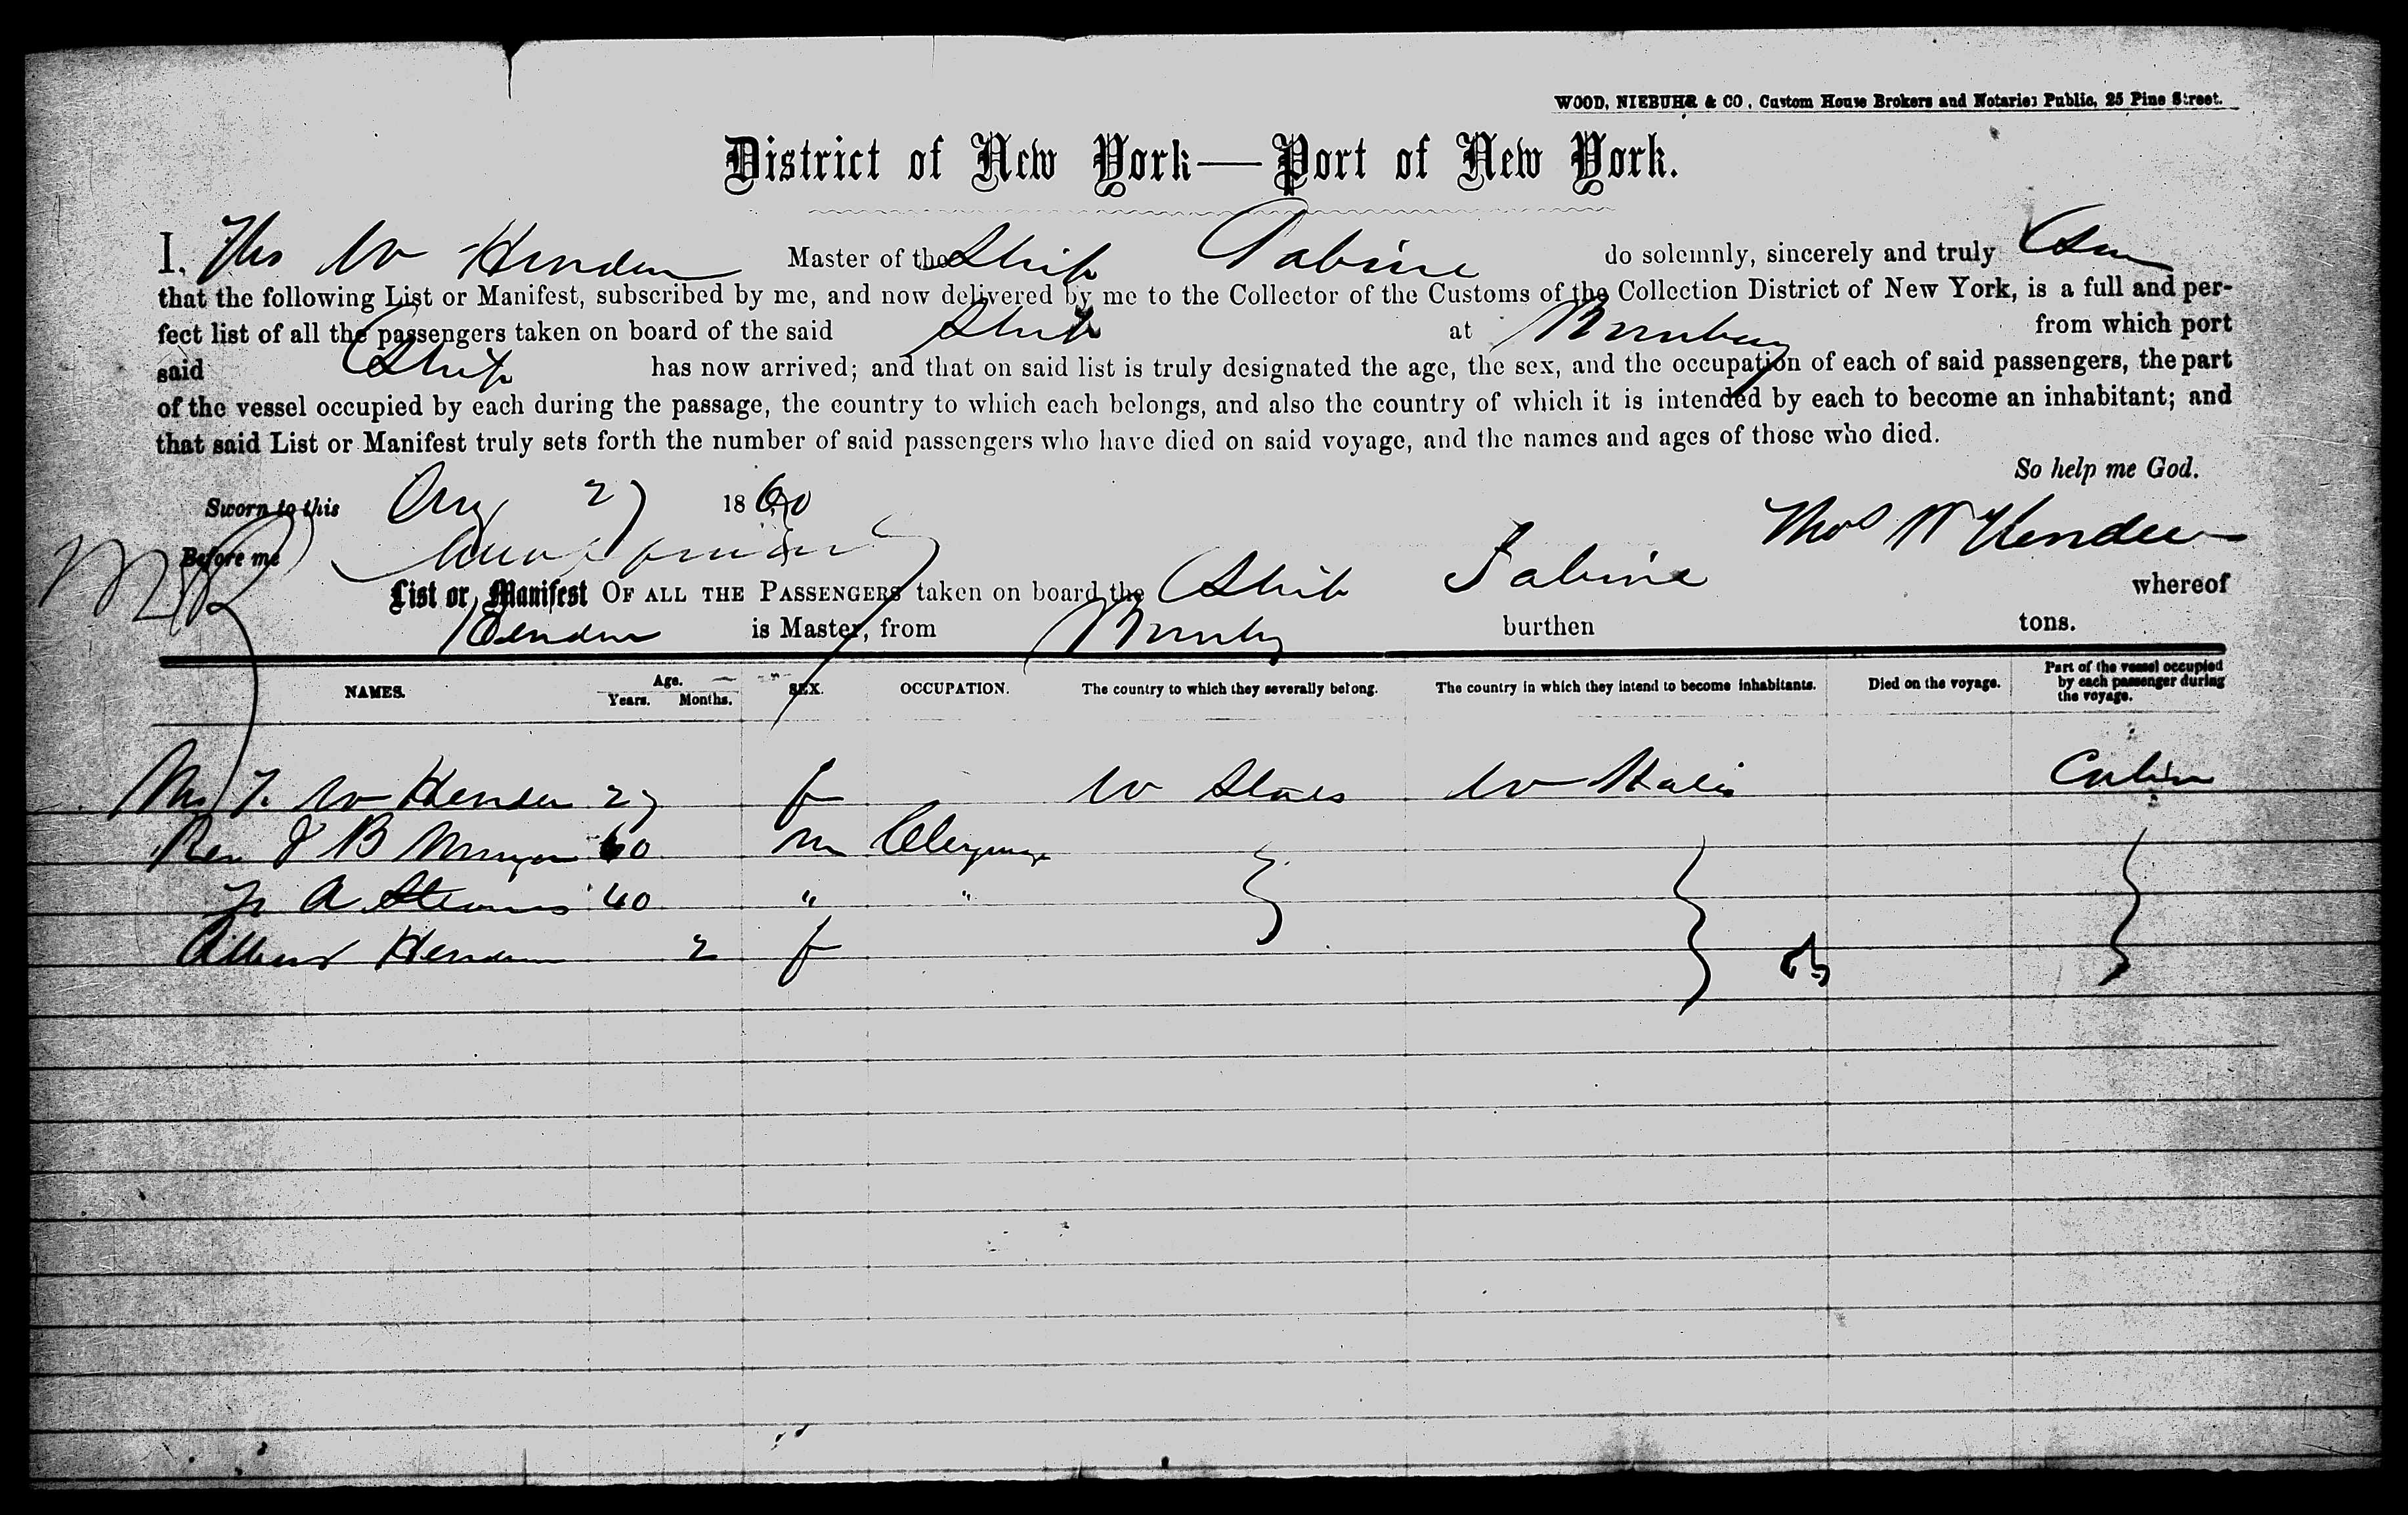 WOOD, NIEBUHR & CO, Custom House Brokers and Notaries Public, 25 Pine Street.
District of New York—Port of New York.
I, Thos W Hendee Master of the Ship Sabine do solemnly, sincerely and truly
that the following List or Manifest, subscribed by me, and now delivered by me to the Collector of the Customs of the Collection District of New York, is a full and per-
fect list of all the passengers taken on board of the said Ship at Bombay from which port
said Ship has now arrived; and that on said list is truly designated the age, the sex, and the occupation of each of said passengers, the part
of the vessel occupied by each during the passage, the country to which each belongs, and also the country of which it is intended by each to become an inhabitant; and
that said List or Manifest truly sets forth the number of said passengers who have died on said voyage, and the names and ages of those who died.
So help me God.
Sworn to this Aug 27 1860
Thos W Hendee
Before me
List or Manifest OF ALL THE PASSENGERS taken on board the Ship Sabine whereof
Hendee is Master, from Bombay burthen tons.
NAMES. Age. Years. Months. SEX. OCCUPATION. The country to which they severally belong. The country in which they intend to become inhabitants. Died on the voyage. Part of the vessel occupied by each passenger during the voyage.
Mrs T. W Hendee 27 f U States U States Cabin
Rev J B 60 m Clergyman
A Stearns 40 " "
Albert Hendee 2 f